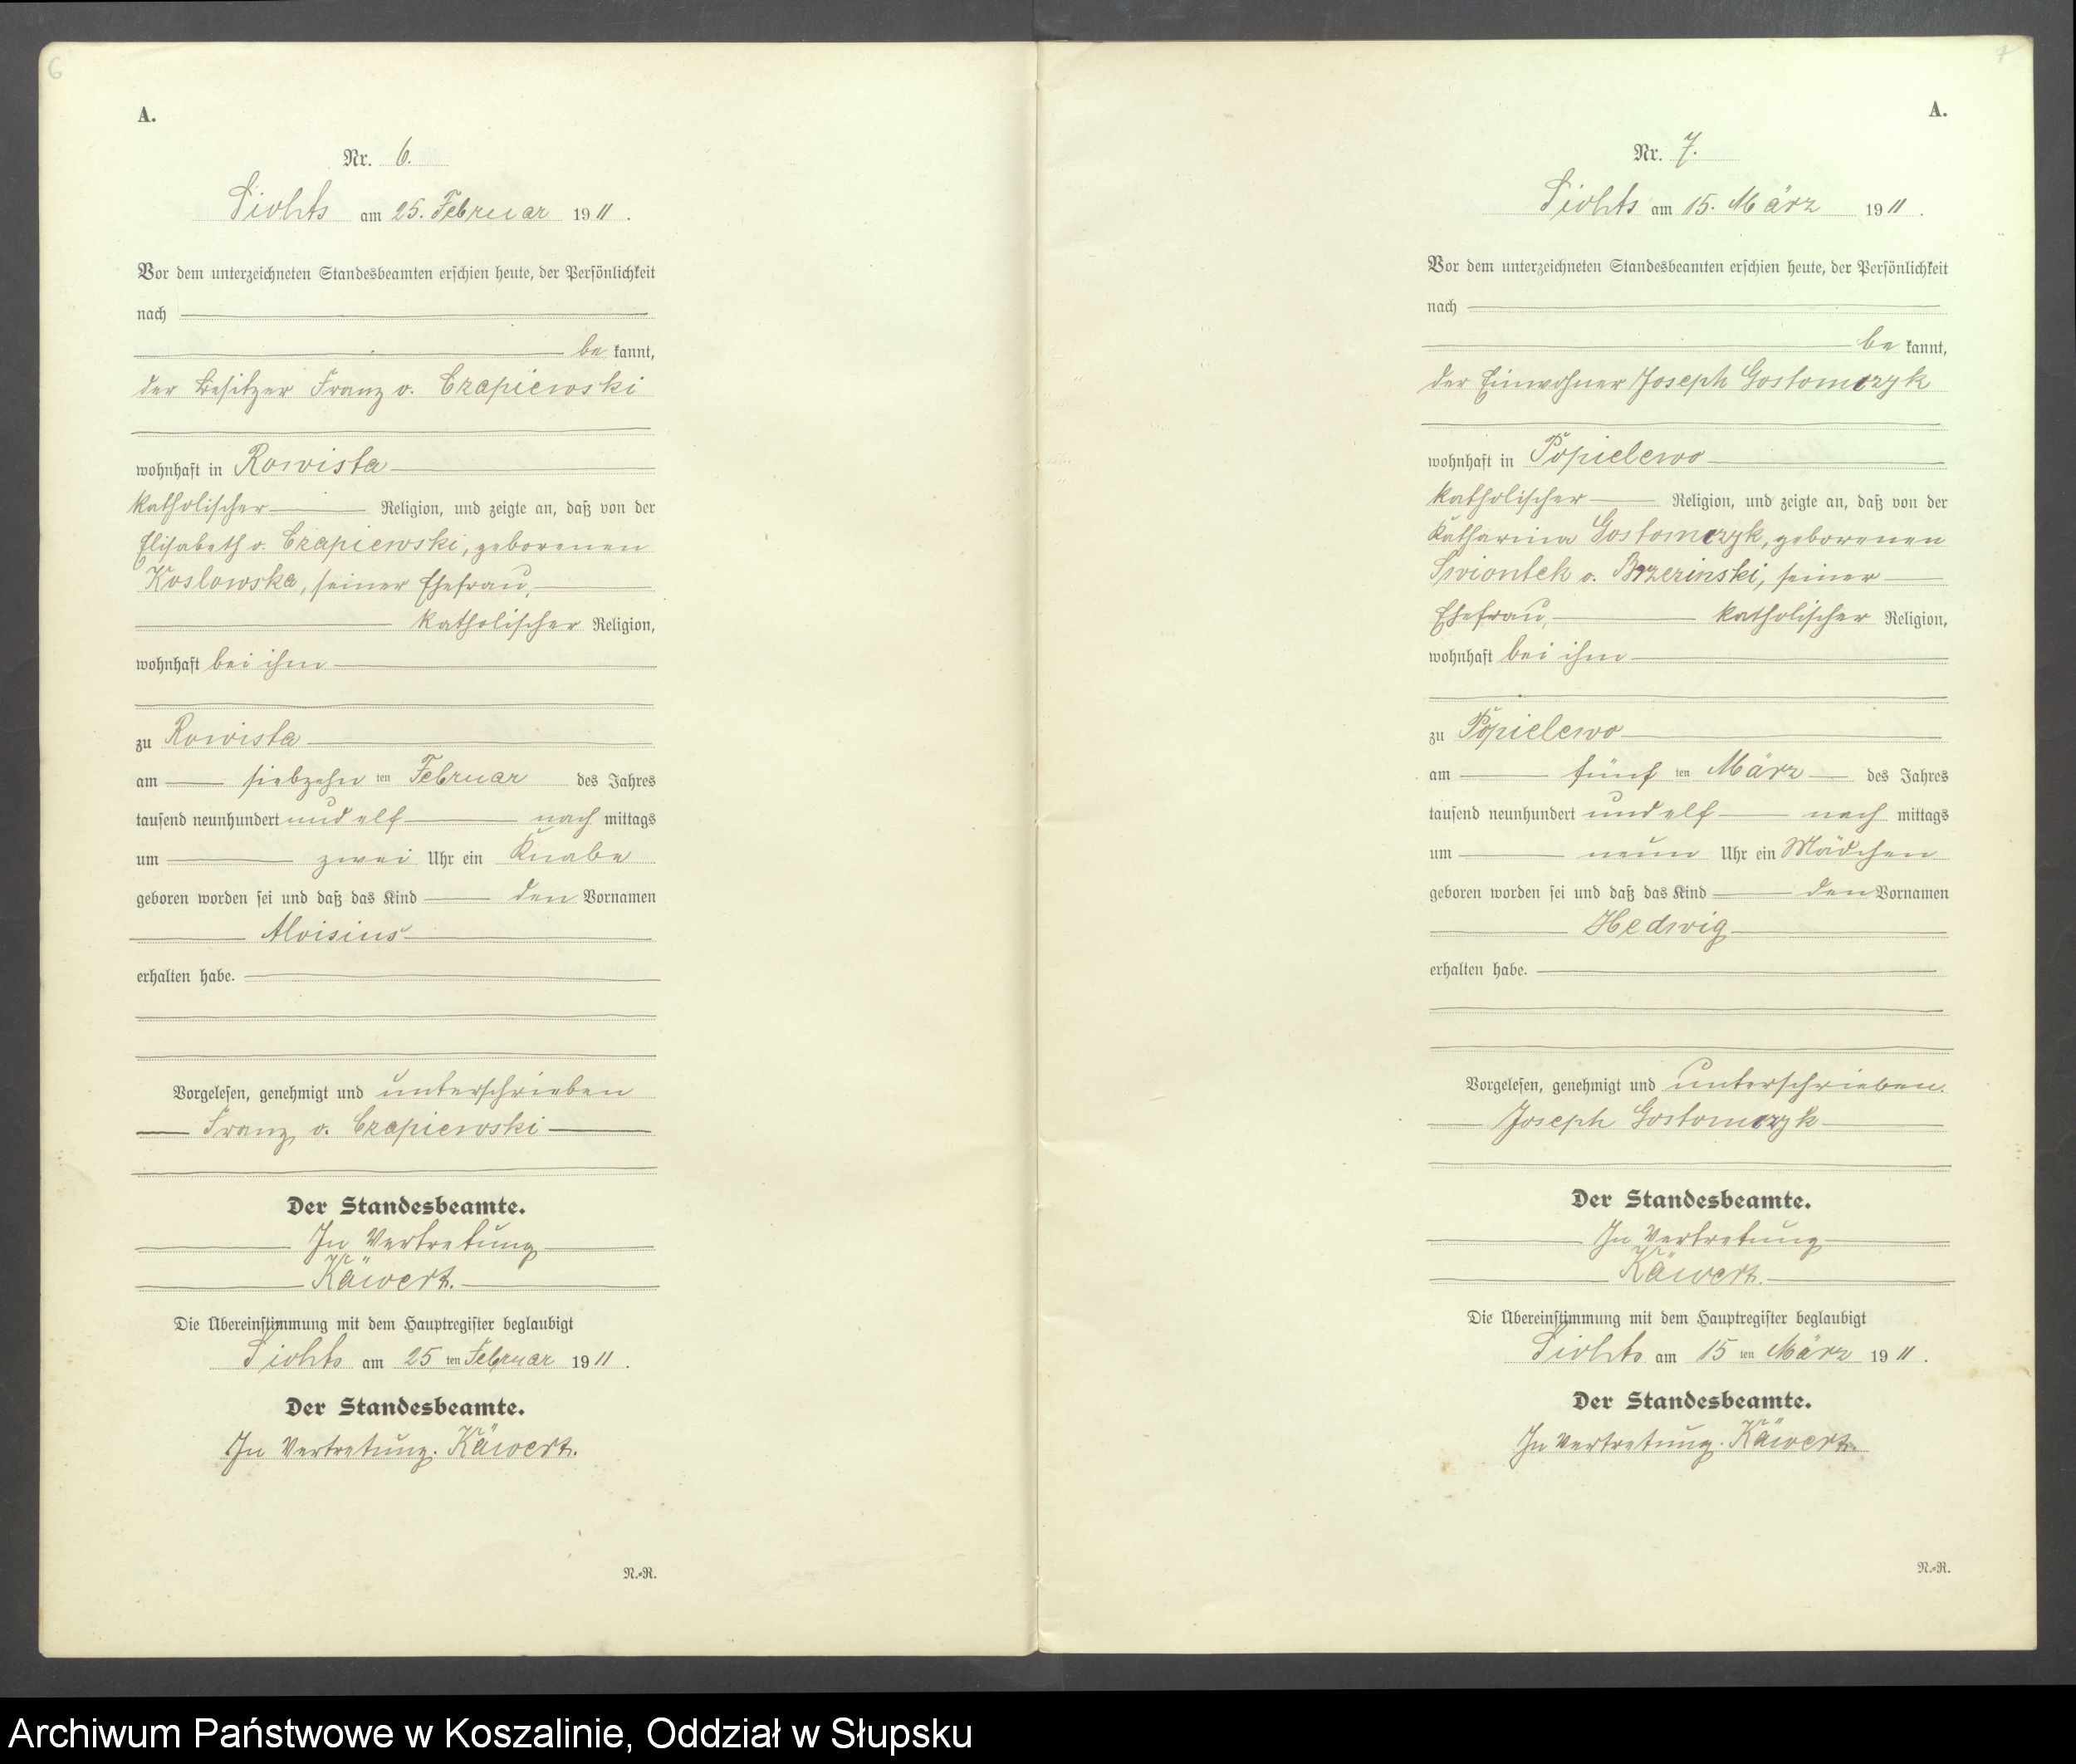 6
A.
Nr. 6.
Liohts am 25. Februar 1911.
Vor dem unterzeichneten Standesbeamten erschien heute, der Persönlichkeit
nach
be kannt,
der Besitzer Franz v. Czapiewski
wohnhaft in Rowista
katholischer Religion, und zeigte an, daß von der
Elisabeth v. Czapiewski, geborenen
Koslowska, seiner Ehefrau,
katholischer Religion,
wohnhaft bei ihm
zu Rowista
am siebzehn ten Februar des Jahres
tausend neunhundert und elf nach mittags
um zwei Uhr ein Knabe
geboren worden sei und daß das Kind den Vornamen
Aloisius
erhalten habe.
Vorgelesen, genehmigt und unterschrieben
Franz v. Czapiewski
Der Standesbeamte.
In Vertretung
Käwert.
Die Übereinstimmung mit dem Hauptregister beglaubigt
Liohts am 25 ten Februar 1911.
Der Standesbeamte.
In Vertretung. Käwert.
N.-R.
7
A.
Nr. 7.
Liohts am 15. März 1911.
Vor dem unterzeichneten Standesbeamten erschien heute, der Persönlichkeit
nach
be kannt,
der Einwohner Joseph Gostomczyk
wohnhaft in Popielewo
katholischer Religion, und zeigte an, daß von der
Katharina Gostomczyk, geborenen
Swiontek v. Brzezinski, seiner
Ehefrau, katholischer Religion,
wohnhaft bei ihm
zu Popielewo
am fünf ten März des Jahres
tausend neunhundert und elf nach mittags
um neun Uhr ein Mädchen
geboren worden sei und daß das Kind den Vornamen
Hedwig
erhalten habe.
Vorgelesen, genehmigt und unterschrieben.
Joseph Gostomczyk
Der Standesbeamte.
In Vertretung
Käwert.
Die Übereinstimmung mit dem Hauptregister beglaubigt
Liohts am 15 ten März 1911.
Der Standesbeamte.
In Vertretung. Käwert.
N.-R.
Archiwum Państwowe w Koszalinie, Oddział w Słupsku